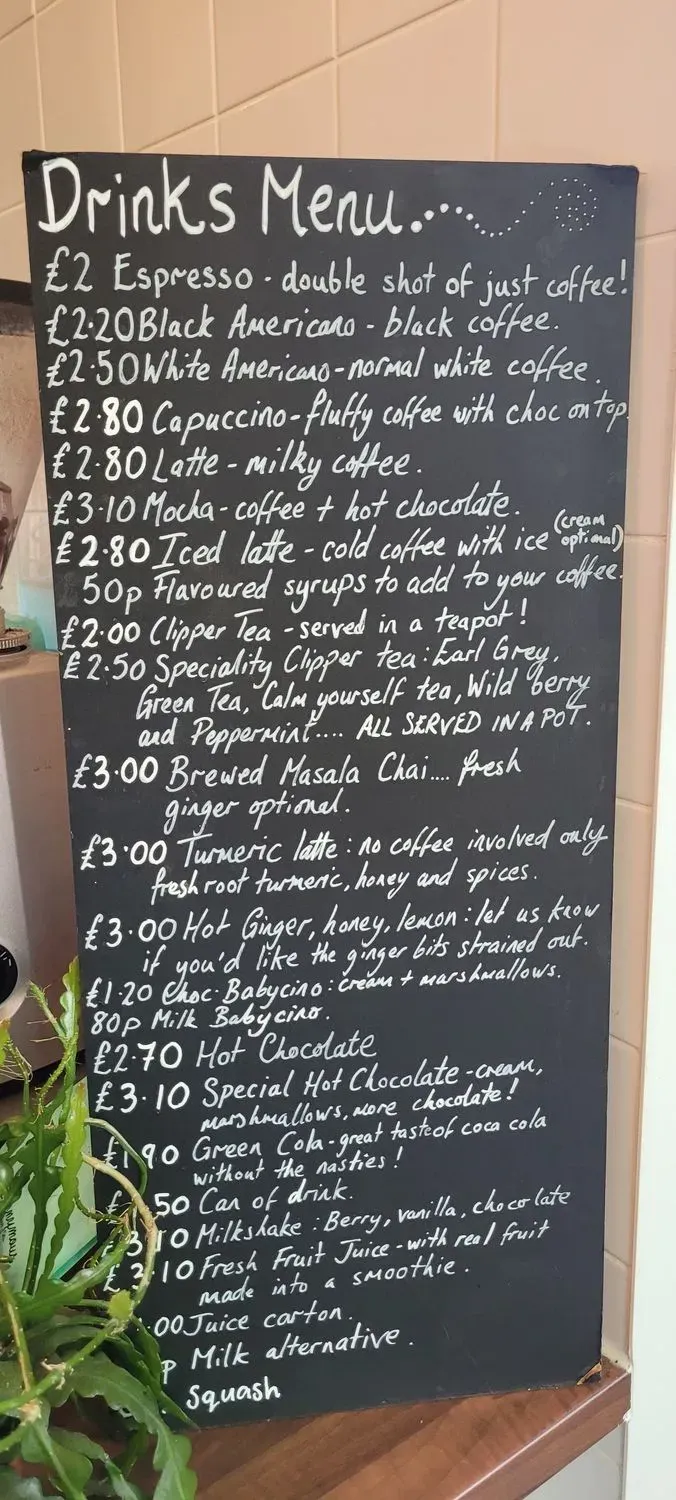 Drinks Menu.
£2 Espresso - double shot of just coffee!
£2.20 Black Americano - black coffee.
£2.50 White Americano - normal white coffee.
£2.80 Capuccino - fluffy coffee with choc on top.
£2.80 Latte - milky coffee.
£3.10 Mocha - coffee + hot chocolate.
£2.80 Iced latte - cold coffee with ice (cream optional)
50p Flavoured syrups to add to your coffee.
£2.00 Clipper Tea - served in a teapot!
£2.50 Speciality Clipper tea: Earl Grey,
Green Tea, Calm yourself tea, Wild berry
and Peppermint.... ALL SERVED IN A POT.
£3.00 Brewed Masala Chai.... fresh
ginger optional.
£3.00 Turmeric latte: no coffee involved only
fresh root turmeric, honey and spices.
£3.00 Hot Ginger, honey, lemon: let us know
if you'd like the ginger bits strained out.
£1.20 Choc. Babycino: cream + marshmallows.
80p Milk Babycino.
£2.70 Hot Chocolate
£3.10 Special Hot Chocolate - cream,
marshmallows, more chocolate!
£1.90 Green Cola - great taste of coca cola
without the nasties!
50 Can of drink.
£3.10 Milkshake: Berry, vanilla, chocolate
£3.10 Fresh Fruit Juice - with real fruit
made into a smoothie.
.00 Juice carton.
p Milk alternative.
Squash